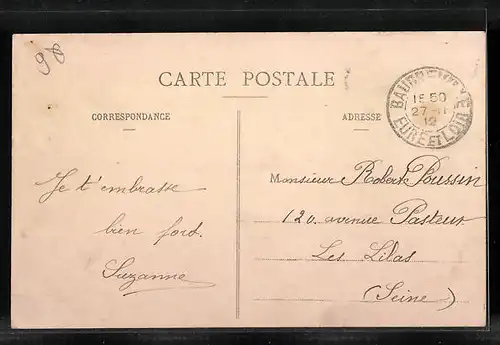 98
CARTE POSTALE
CORRESPONDANCE
ADRESSE
15 50
27 -
12
EURE-ET-LOIR
Je t'embrasse
bien fort.
Suzanne
Monsieur Robert Poussin
120. avenue Pasteur
Les Lilas
(Seine)